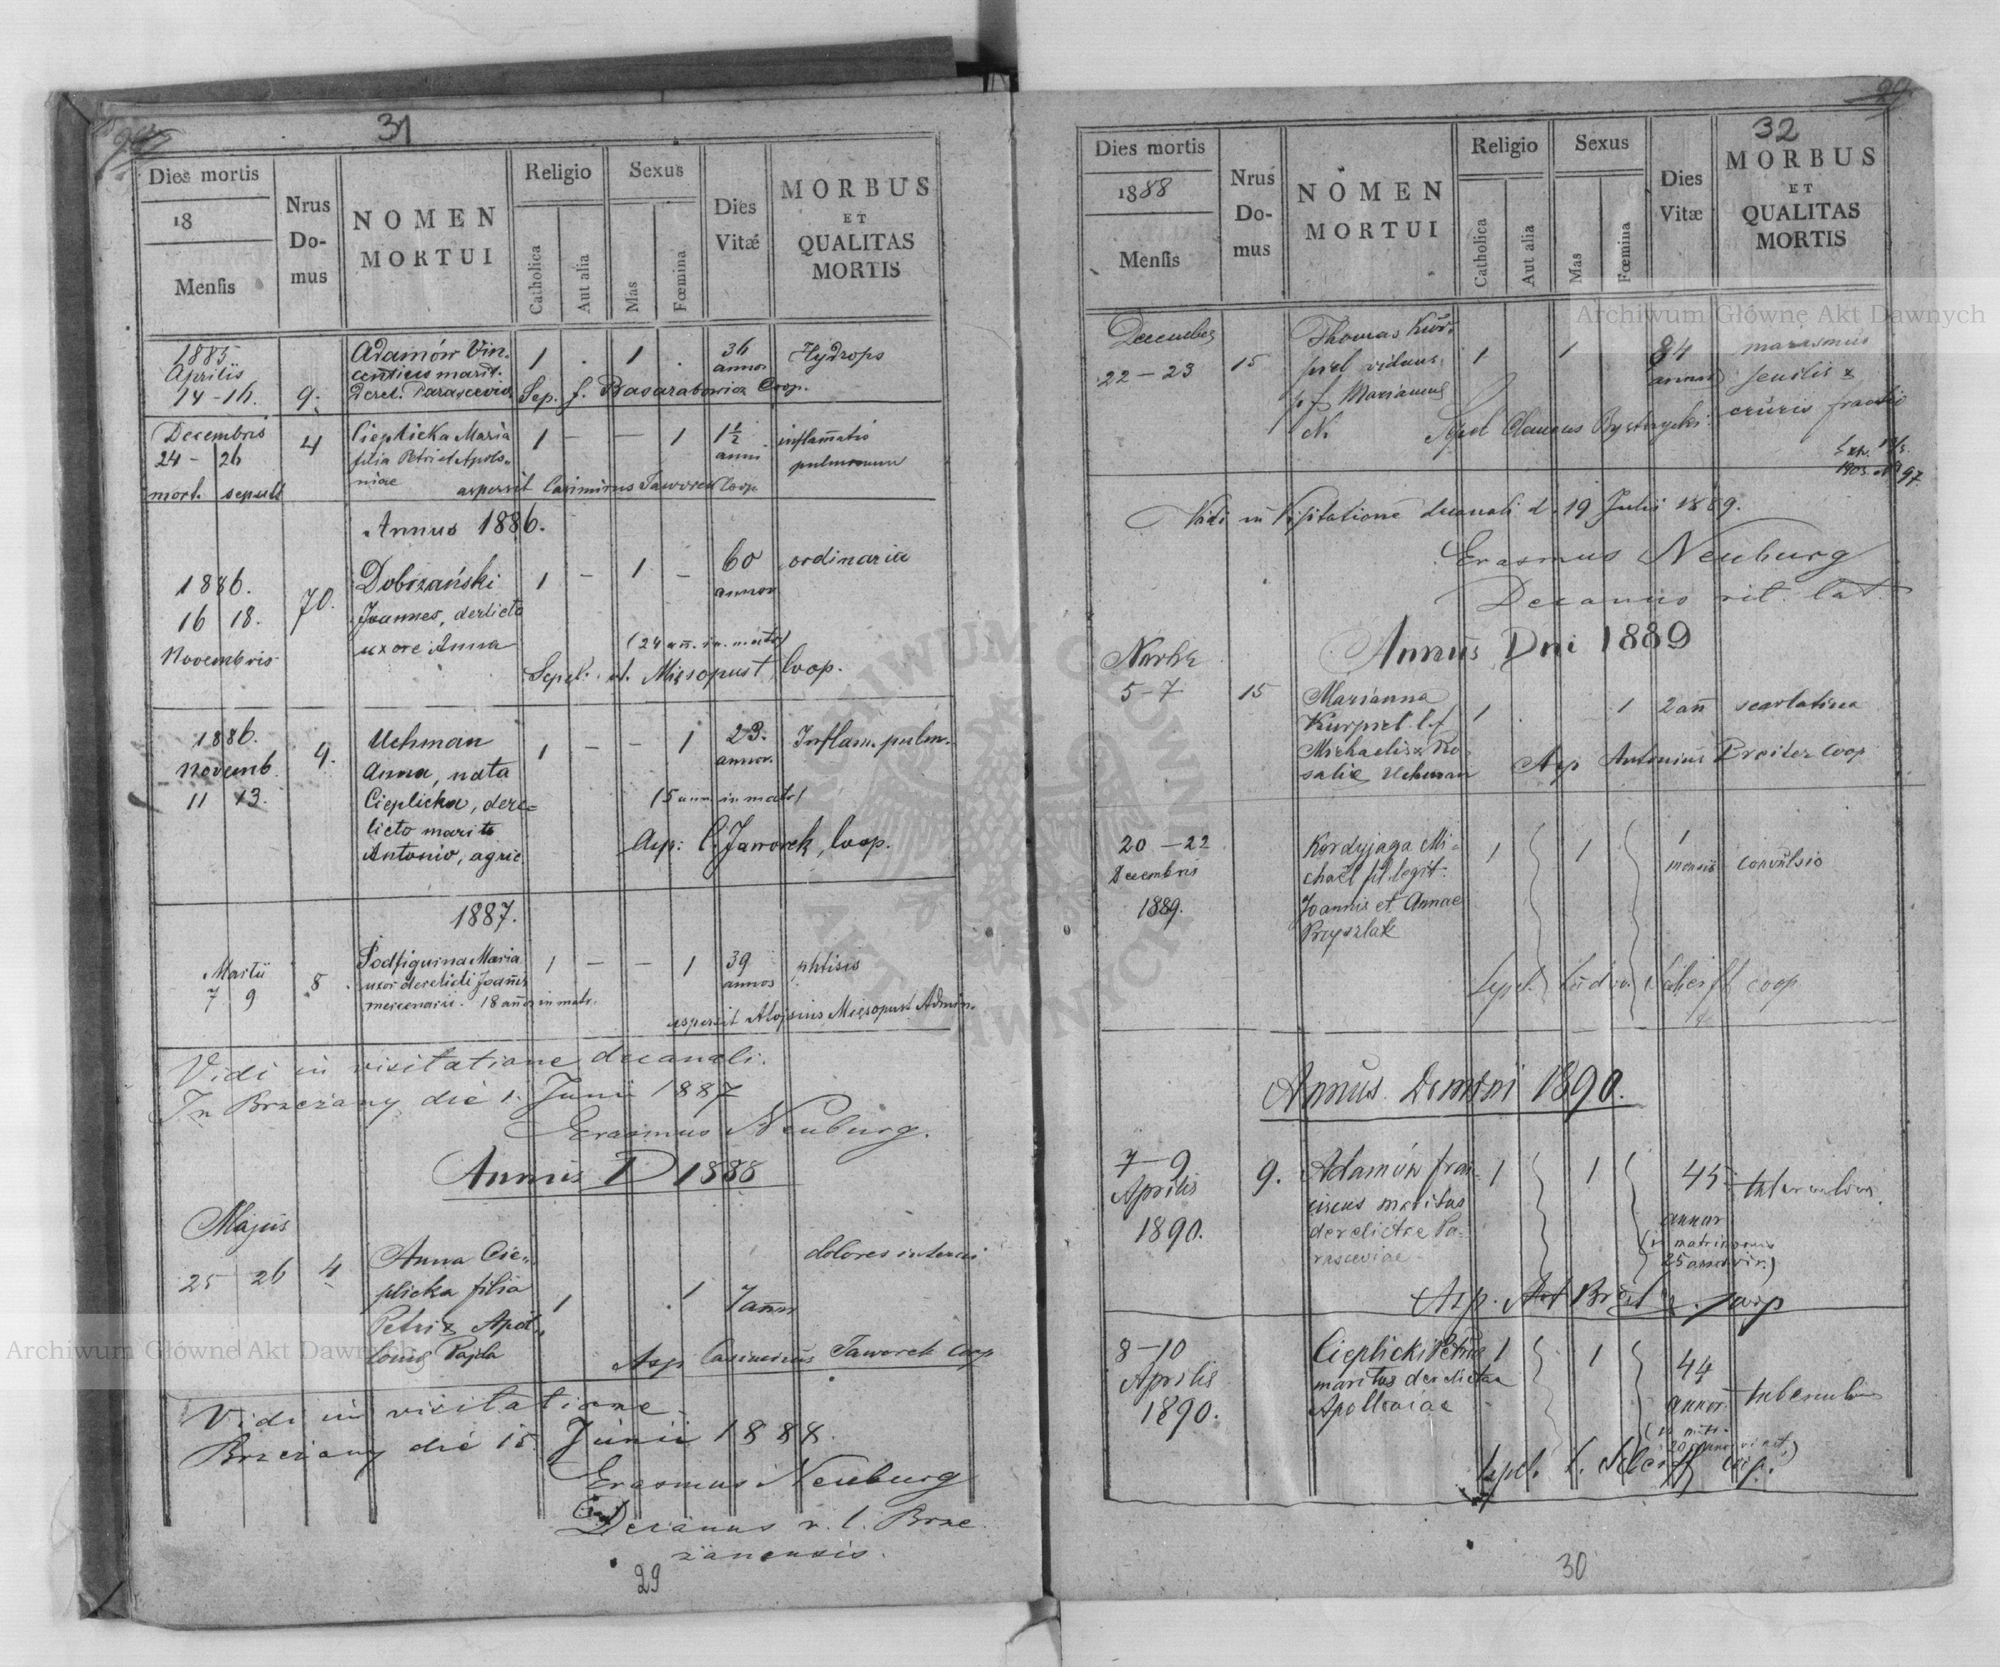 31
Dies mortis
18
Mensis
Nrus Do-mus
NOMEN
MORTUI
Religio
Catholica
Aut alia
Sexus
Mas
Fœmina
Dies
Vitæ
MORBUS
ET
QUALITAS
MORTIS
1885
Aprilis
14-16.
9.
Adamów Vin-
centius marit.
Derel. Parasceviae
1 . 1 .
36
annor
Hydrops
Sep. f. Basarabowicz Coop.
Decembris
24 - 26
mort. sepult
4
Cieplicka Maria
filia Petri et Apolo-
niae
1 - - 1
1 1/2
anni
inflamatio
pulmonum
aspersit Casimirus Jaworek Coop
Annus 1886.
1886.
16 18.
Novembris
70.
Dobrzański
Joannes, derlicta
uxore Anna
1 - 1 -
60
annor
ordinaria
(24 ann. in matr)
Sepel. A. Mięsopust, Coop.
1886.
Novemb.
11 13.
9.
Uchman
Anna, nata
Cieplicka, dere-
licto marito
Antonio, agric.
1 - - 1
23.
annor.
Inflam. pulm.
(5 ann. in matr)
Asp: C. Jaworek, Coop.
1887.
Martii
7 9
8
Podfigurna Maria
uxor derelicti Joannis
mercenarii. 18 años in matr.
1 - - 1
39
annos
phtisis
aspersit Aloysius Mięsopust Admin.
Vidi in visitatione decanali.
In Brzeżany die 1. Junii 1887
Erasmus Neuburg.
Annus D 1888
Majus
25 26
4
Anna Cie-
plicka filia
Petri & Apol-
loniæ Pajda
1 . 1
7 ann
dolores interni
Asp Casimirus Jaworek Coop
Vidi in visitatione
Brzeżany die 15. Junii 1888.
Erasmus Neuburg
Decanus r. l. Brze
żanensis.
29
32
Dies mortis
1888
Mensis
Nrus
Do-
mus
NOMEN
MORTUI
Religio
Catholica
Aut alia
Sexus
Mas
Fœmina
Dies
Vitæ
MORBUS
ET
QUALITAS
MORTIS
December
22-23
15
Thomas Kur-
piel viduus
p f Mariannæ
N.
1 1
84
annor
marasmus
senilis &
cruris fractio
Sepel Clemens Bystrzycki
Vidi in Visitatione decanali d. 19 Julii 1889.
Erasmus Neuburg
Decanus rit. lat.
Annus Dni 1889
5-7
15
Marianna
Kurpiel l. f
Michaelis & Ro-
salie Uchman
1 . 1
2 añ
scarlatina
Asp Antonius Breiter Coop
20-22
Decembris
1889.
Kordyjaga Mi-
chael fil. legit.
Joannis et Annae
Przyszlak
1 1
1
mensis
convulsio
Sepel. Ludov. Scherff coop
Annus Domini 1890.
7-9
Aprilis
1890.
9.
Adamów Fran-
ciscus maritus
derelictae Pa-
rasceviae
1 1
45
annor
(in matrimonio
25 annos vix.)
tuberculosis
8-10
Aprilis
1890.
Cieplicki Petrus
maritus derelictae
Apolloniae
1 1
44
annor.
tuberculosis
Sepel. L. Scherff coop.
30
Archiwum Główne Akt Dawnych
Archiwum Główne Akt Dawnych
ARCHIWUM GŁÓWNE AKT DAWNYCH